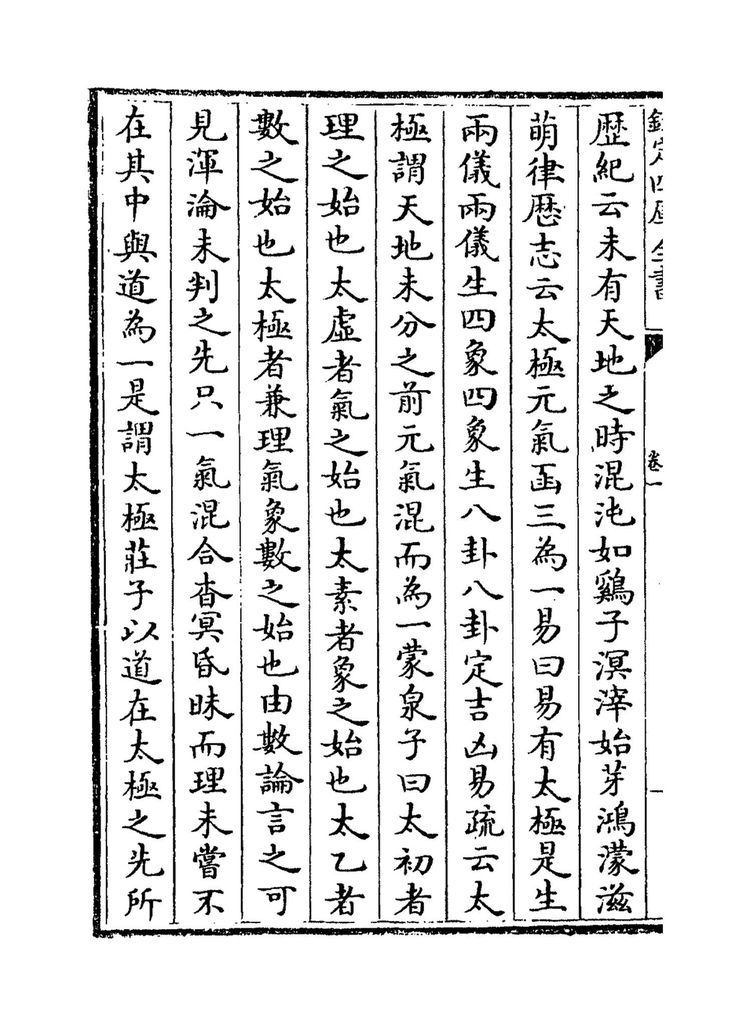 欽定四庫全書
卷一
歴紀云未有天地之時混沌如鷄子溟涬始芽鴻濛滋
萌律厯志云太極元氣函三為一易曰易有太極是生
兩儀兩儀生四象四象生八卦八卦定吉凶易疏云太
極謂天地未分之前元氣混而為一蒙泉子曰太初者
理之始也太虛者氣之始也太素者象之始也太乙者
數之始也太極者兼理氣象數之始也由數論言之可
見渾淪未判之先只一氣混合杳冥昏昧而理未嘗不
在其中與道為一是謂太極莊子以道在太極之先所